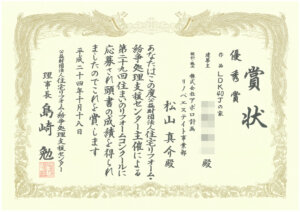 賞状
優秀賞
作品 の家
建築主 殿
株式会社アポロ計画
リノベエステイト事業部
松山真介殿
あなたはこの度公益財団法人住宅リフォーム・
紛争処理支援センター主催による
第二十九回住まいのリフォームコンクールに
応募され頭書の成績を得られ
ましたのでこれを賞します
平成二十四年十月十八日
公益財団法人住宅リフォーム・紛争処理支援センター
理事長 島崎勉